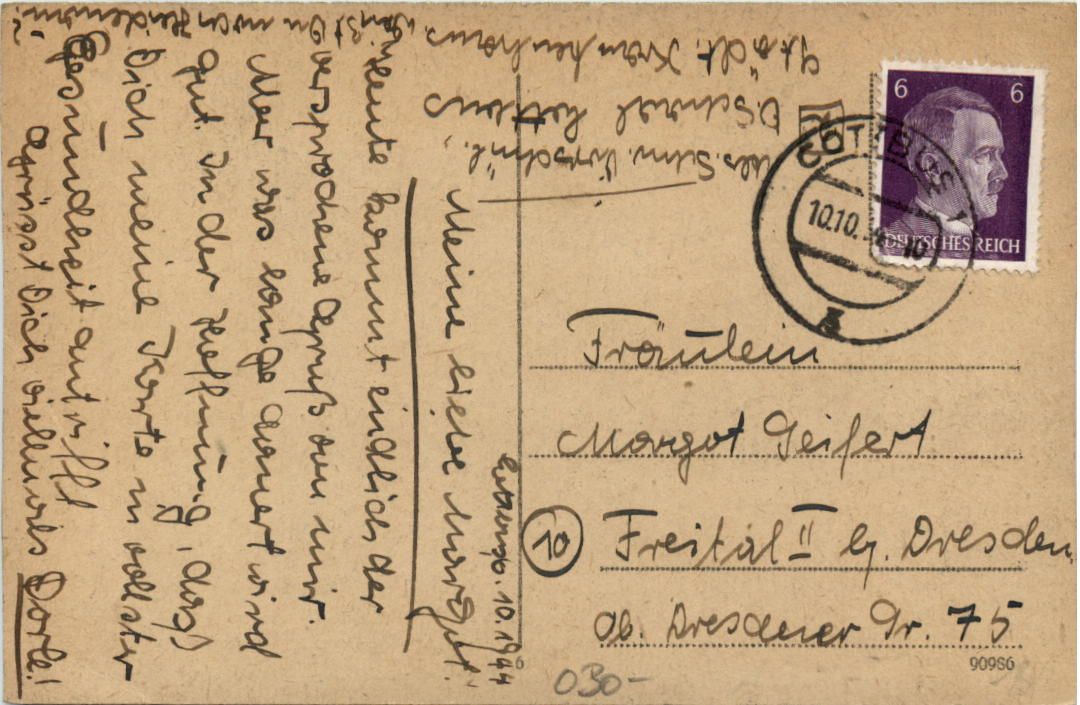 Meine liebe Margot!
Heute kommt endlich der
versprochene Gruß von mir.
Aber was lange dauert wird
gut. In der Hoffnung, daß
Dich meine Karte in vollster
Gesundheit antrifft
grüsst Dich vielmals Dorle!
10.1944
Städt. Krankenhaus
6 6
DEUTSCHES REICH
COTTBUS
10.10.
Fräulein
Margot Seifert
10 Freital II b. Dresden
Ob. Dresdener Str. 75
6
90986
030-